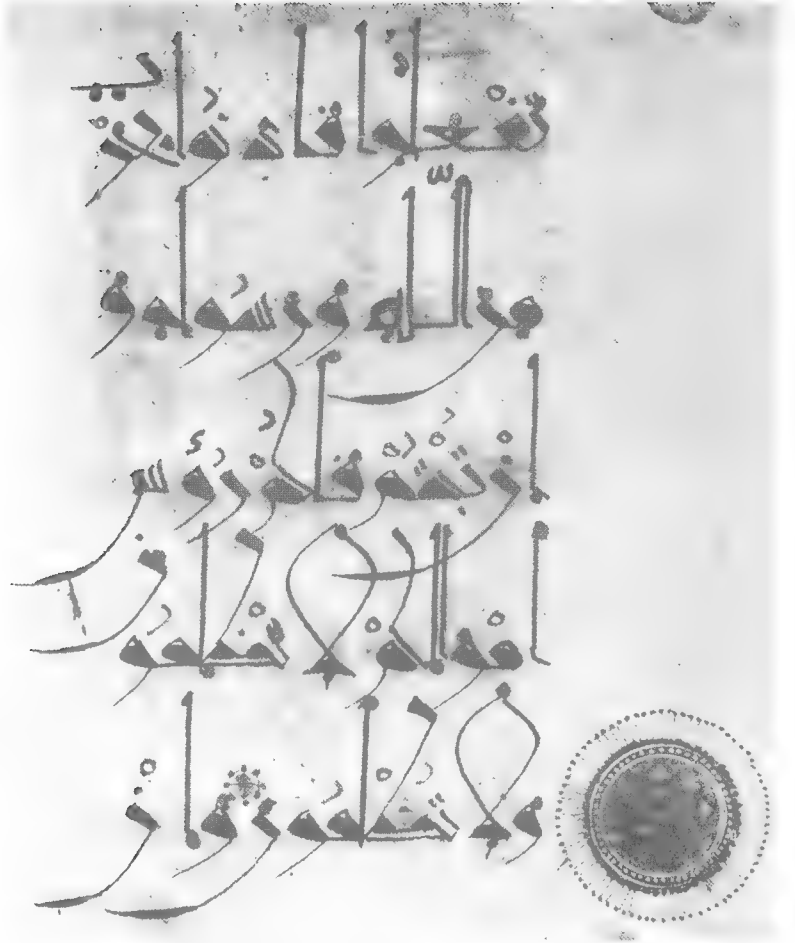 تفعلوا فأذنوا بحرب
من الله ورسوله و
إن تبتم فلكم رءوس
أموالكم لا تظلمون
ولا تظلمون وإن